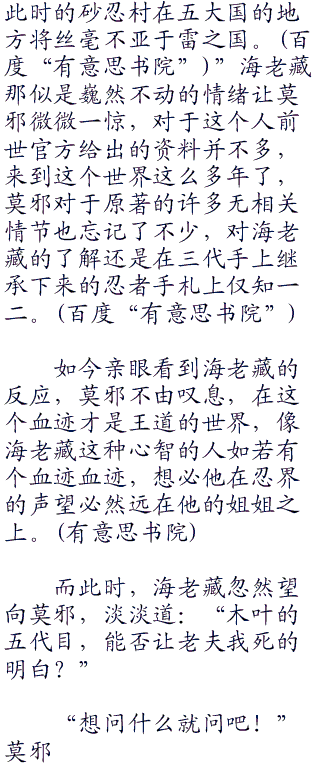 此时的砂忍村在五大国的地
方将丝毫不亚于雷之国。(百
度“有意思书院”)”海老藏
那似是巍然不动的情绪让莫
邪微微一惊，对于这个人前
世官方给出的资料并不多，
来到这个世界这么多年了，
莫邪对于原著的许多无相关
情节也忘记了不少，对海老
藏的了解还是在三代手上继
承下来的忍者手札上仅知一
二。(百度“有意思书院”)
如今亲眼看到海老藏的
反应，莫邪不由叹息，在这
个血迹才是王道的世界，像
海老藏这种心智的人如若有
个血迹血迹，想必他在忍界
的声望必然远在他的姐姐之
上。(有意思书院)
而此时，海老藏忽然望
向莫邪，淡淡道：“木叶的
五代目，能否让老夫我死的
明白？”
“想问什么就问吧！”
莫邪